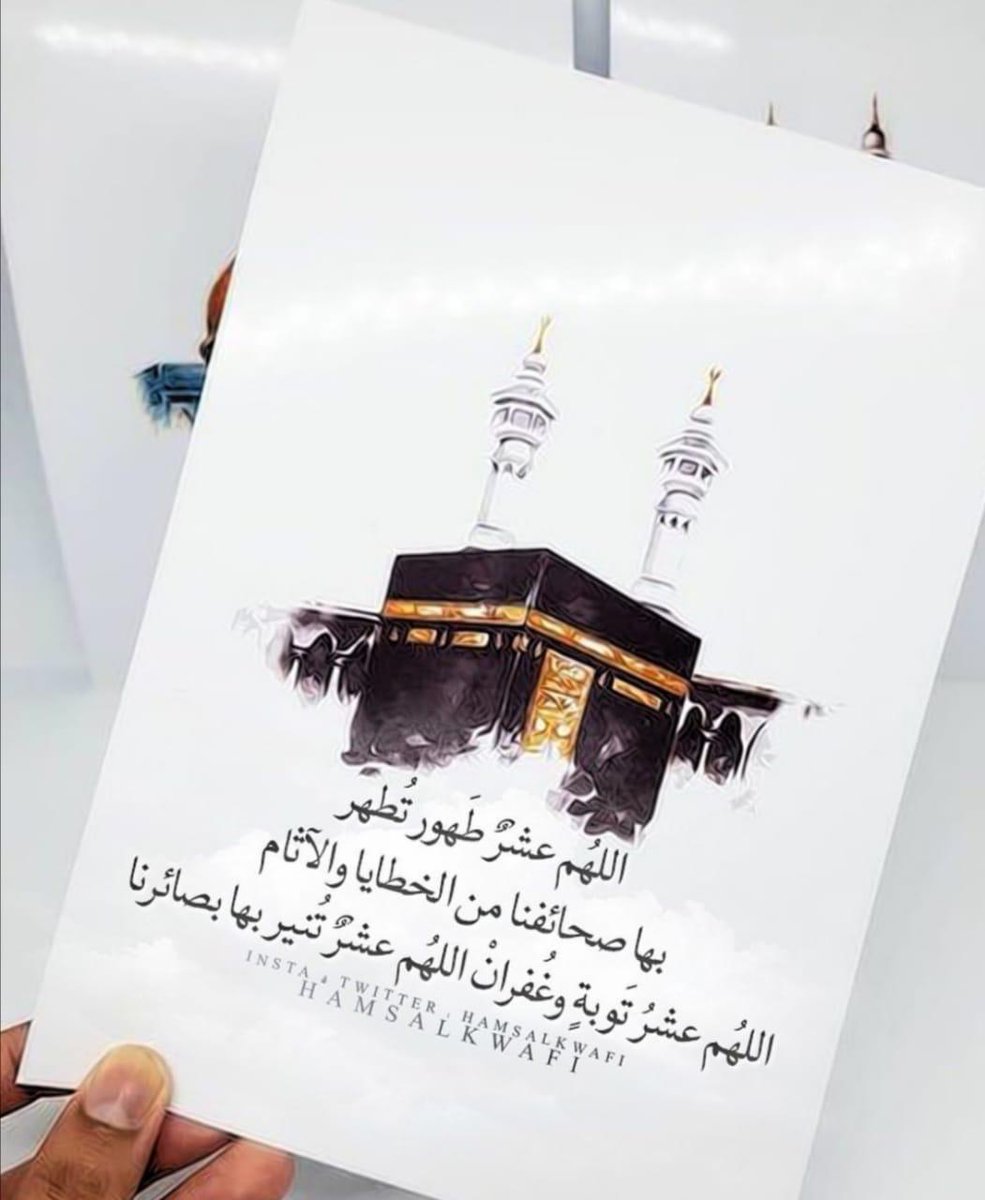 اللهُم عشرٌ طَهور تُطهر
بها صحائفنا من الخطايا والآثام
اللهُم عشرُ تَوبةٍ وغُفرانْ اللهُم عشرٌ تُنير بها بصائرنا
INSTA & TWITTER . HAMSALKWAFI
HAMSALKWAFI